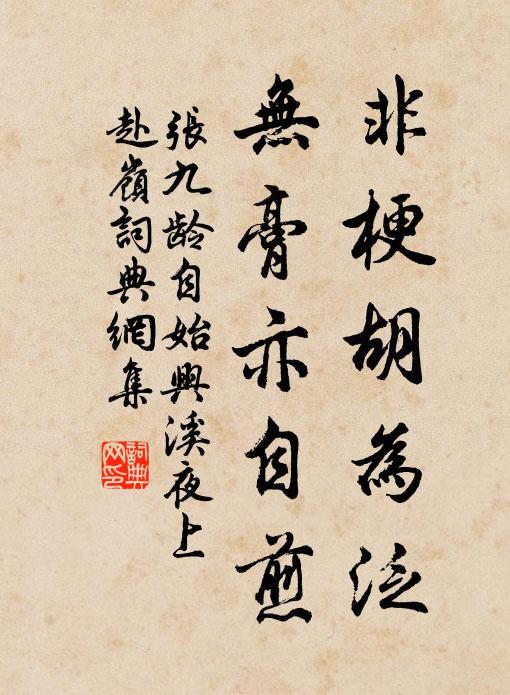 非梗胡為泛
無膏亦自煎
張九龄自始興溪夜上
赴嶺詞典網集
詞典
网印